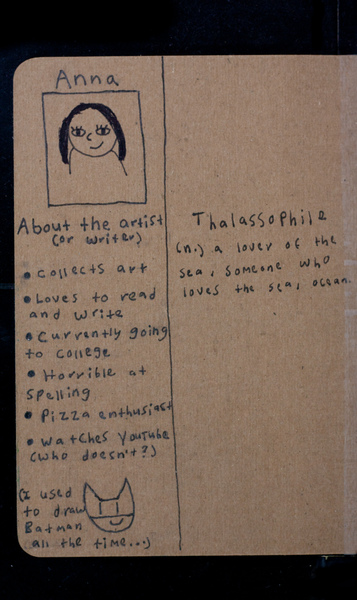 Anna
About the artist
(or writer)
• collects art
• Loves to read
and write
• Currently going
to college
• Horrible at
spelling
• Pizza enthusiast
• watches YouTube
(who doesn't?)
(I used
to draw
Batman
all the time...)
Thalassophile
(n.) a lover of the
sea, someone who
loves the sea, ocean.